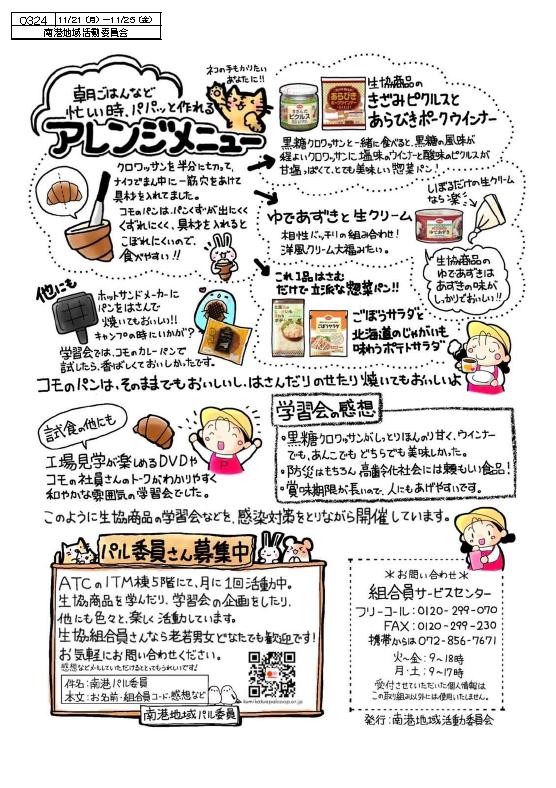 0324
11/21(月)―11/25(金)
南港地域活動委員会
朝ごはんなど
忙しい時、パパッと作れる
アレンジメニュー
ネコの手もかりたい
あなたに!!
生協商品の
きざみピクルスと
あらびきポークウインナー
きざんで
ピクルス
あらびき
ポークウインナー
黒糖クロワッサンと一緒に食べると、黒糖の風味が
程よいクロワッサンに塩味のウインナーと酸味のピクルスが
甘塩っぱくて、とても美味しい惣菜パン!
クロワッサンを半分に切って、
ナイフでまん中に一筋穴をあけて
具材を入れてました。
コモのパンは、パンくずが出にくく
くずれにくく、具材を入れると
こぼれにくいので、
食べやすい!!
ゆであずきと生クリーム
相性バッチリの組み合わせ!
洋風クリーム大福みたい。
しぼるだけの生クリーム
なら楽
ゆであずき
生協商品の
ゆであずきは
あずきの味が
しっかりでおいしい!!
これ1品はさむ
だけで立派な惣菜パン!!
ごぼうサラダ
ごぼうサラダと
北海道のじゃがいも
味わうポテトサラダ
他にも
ホットサンドメーカーに
パンをはさんで
焼いてもおいしい!!
キャンプの時にいかが?
学習会では、コモのカレーパンで
試したら、香ばしくておいしかったです。
コモのパンは、そのままでもおいしいし、はさんだりのせたり焼いてもおいしいよ
試食の他にも
工場見学が楽しめるDVDや
コモの社員さんのトークがわかりやすく
和やかな雰囲気の学習会でした。
P
学習会の感想
・黒糖クロワッサンがしっとりほんのり甘く、ウインナー
でも、あんこでもどちらでも美味しかった。
・防災はもちろん高齢化社会には頼もしい食品!
・賞味期限が長いので、人にもあげやすいです。
このように生協商品の学習会などを、感染対策をとりながら開催しています。
パル委員さん募集中
ATCのITM棟5階にて、月に1回活動中。
生協商品を学んだり、学習会の企画をしたり、
他にも色々と、楽しく活動しています。
生協組合員さんなら老若男女どなたでも歓迎です!
お気軽にお問い合わせください。
感想などメモしていただけるととってもうれしいです!
件名:南港パル委員
本文:お名前・組合員コード・感想など
南港地域パル委員
*お問い合わせ*
組合員サービスセンター
フリーコール:0120-299-070
FAX:0120-299-230
携帯からは072-856-7671
火~金:9~18時
月・土:9~17時
受付させていただいた個人情報は
この取り組み以外には使用いたしません。
発行:南港地域活動委員会